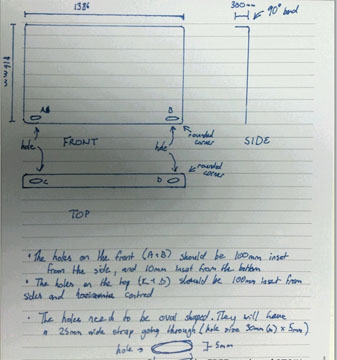 1386
300mm
90° bend
AB
B
hole
hole
rounded
corner
FRONT
SIDE
rounded
corner
C
D
TOP
• The holes on the front (A+B) should be 100mm inset
from the side, and 10mm inset from the bottom
• The holes on the top (C+D) should be 100mm inset from
sides and centred
• The holes need to be oval shaped. They will have
a 25mm wide strap going through (hole size 30mm (w) x 5mm)
hole →
5mm